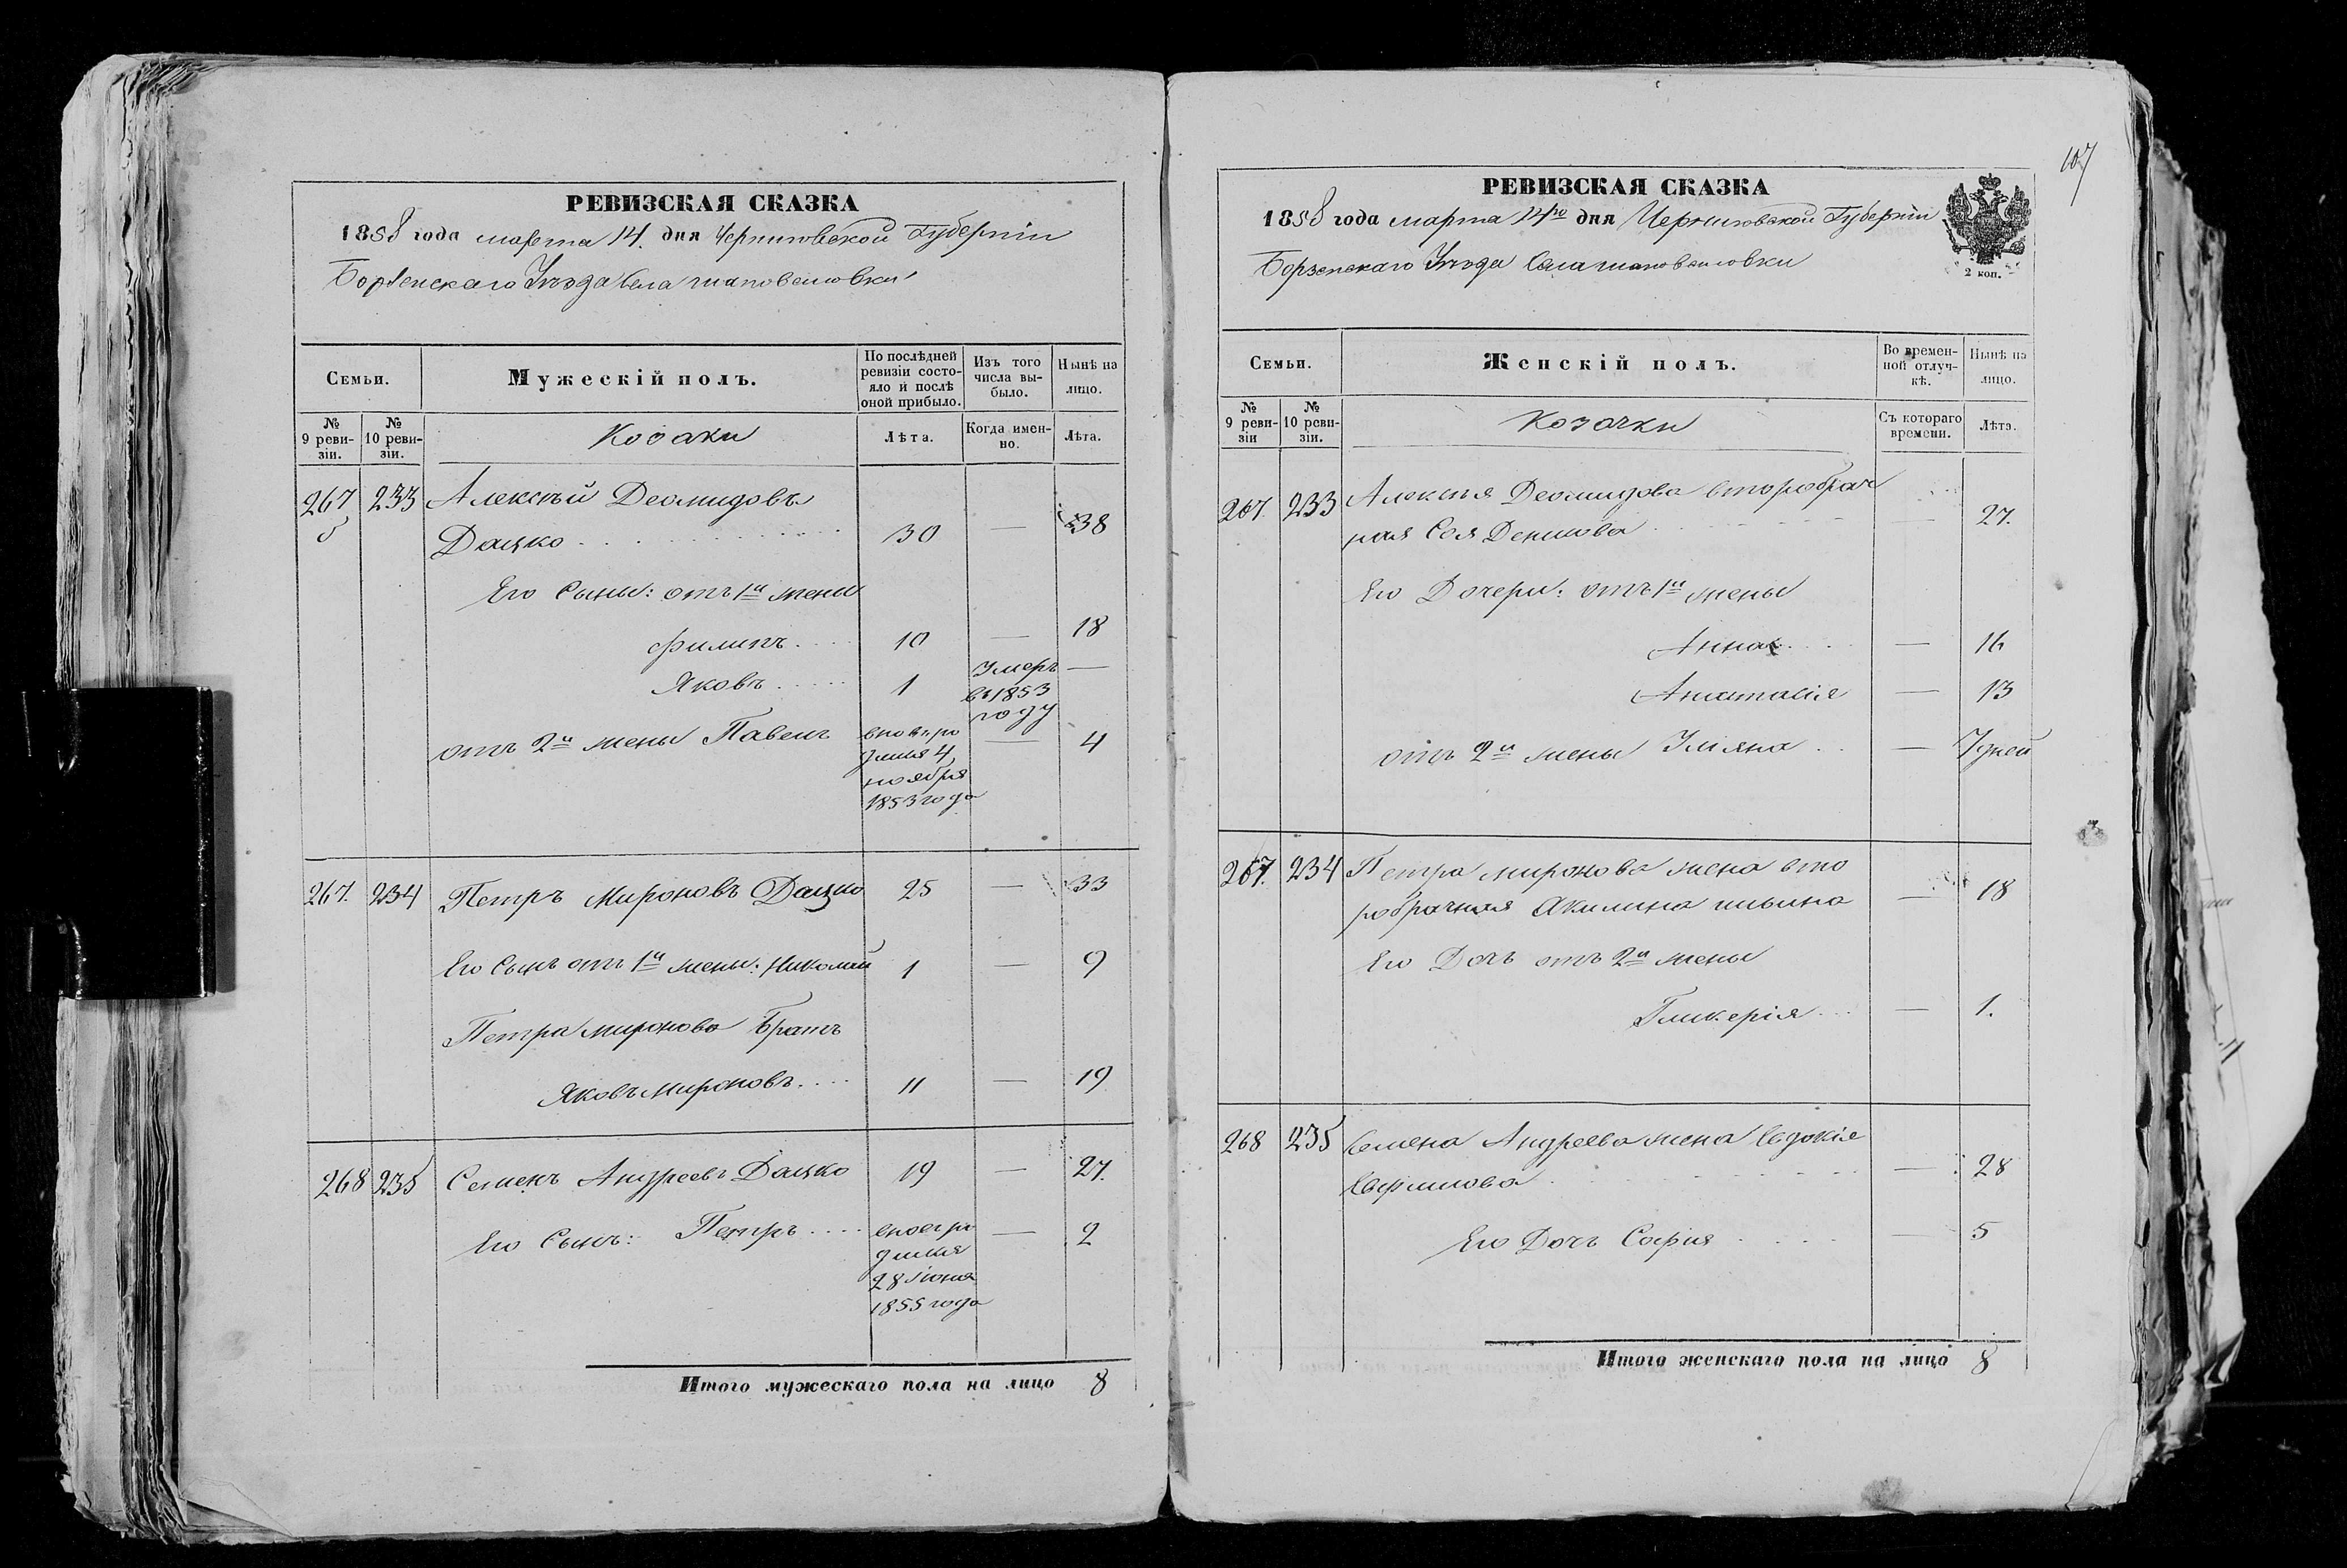 РЕВИЗСКАЯ СКАЗКА
1858 года марта 14. дня Черниговской Губерніи
Борзенскаго Уѣзда Села Шаповаловки
Семьи.
Мужескій полъ.
По послѣдней ревизіи состояло и послѣ оной прибыло.
Изъ того числа выбыло.
Нынѣ на лицо.
№ 9 ревизіи.
№ 10 ревизіи.
Козаки
Лѣта.
Когда именно.
Лѣта.
267 233 Алексѣй Деомидовъ
Дацко 30 — 38
Его Сыны: отъ 1й жены
Филипъ 10 — 18
Яковъ 1 Умеръ въ 1853 году —
отъ 2й жены Павелъ вновь родился 4 ноября 1853 года — 4
267. 234 Петръ Мироновъ Дацко 25 — 33
Его Сынъ отъ 1й жены: Николай 1 — 9
Петра Миронова Братъ
Яковъ Мироновъ 11 — 19
268 235 Семенъ Андреевъ Дацко 19 — 27.
Его Сынъ: Петръ вновь родился 28 Іюня 1855 года — 2
Итого мужескаго пола на лицо 8
107
РЕВИЗСКАЯ СКАЗКА
1858 года марта 14го дня Черниговской Губерніи
Борзенскаго Уѣзда Села Шаповаловки
2 коп.
Семьи.
Женскій полъ.
Во временной отлучкѣ.
Нынѣ на лицо.
№ 9 ревизіи
№ 10 ревизіи.
Козачки
Съ котораго времени.
Лѣта.
267. 233 Алексѣя Деомидова второбрач
ная — 27.
Его Дочери: отъ 1й жены
Анна — 16
Анастасія — 13
отъ 2й жены Уліяна — 7 дней
267. 234 Петра Миронова жена вто
робрачная Акилина — 18
Его Дочь отъ 2й жены
Гликерія — 1.
268 235 Семена Андреева жена Евдокія
Евфимова — 28
Его Дочь Софія — 5
Итого женскаго пола на лицо 8